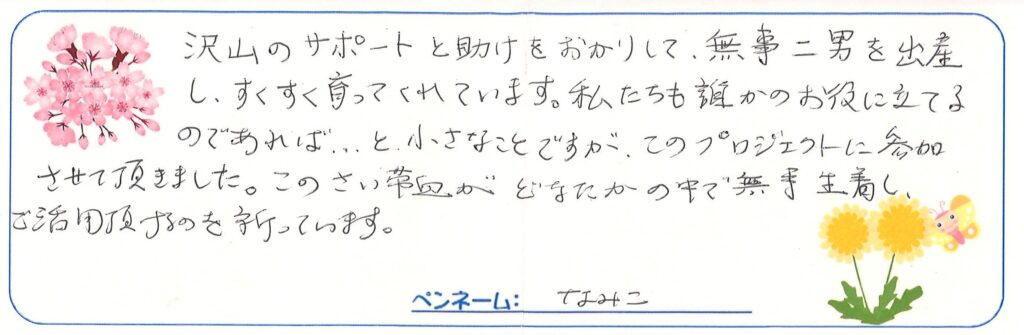 沢山のサポートと助けをおかりして、無事二男を出産
し、すくすく育ってくれています。私たちも誰かのお役に立てる
のであれば…と小さなことですが、このプロジェクトに参加
させて頂きました。このさい帯血がどなたかの中で無事生着し、
ご活用頂けるのを祈っています。
ペンネーム: なみこ